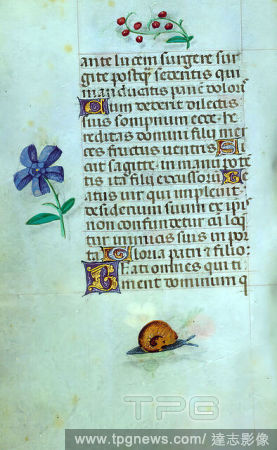 ante lucem surgere sur
gite postq̄ sedentis qui
manducatis panē doloris
Cum dederit dilectis
suis sompnum ecce he
reditas domini filij mer
ces fructus uentris Si
cut sagitte in manu pote
tis ita filij excussorū Be
atus uir qui impleuit
desiderium suum ex ipis
non confundetur cū loq̄
tur inimicis suis in por
ta Gloria patri & filio
Beati omnes qui ti
ment dominum q
TPG
www.tpgnews.com/ 達志影像